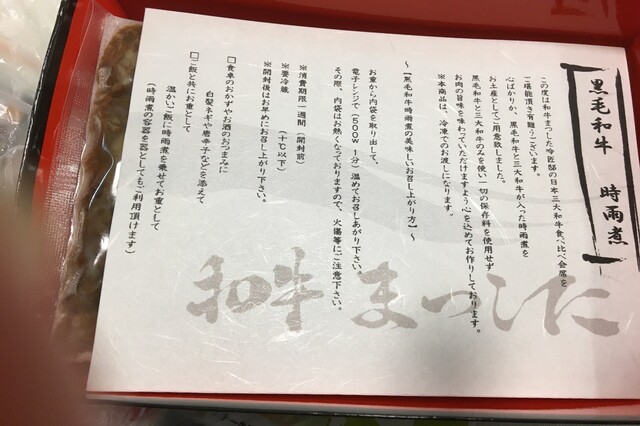 黒毛和牛 時雨煮
この度は和牛まつした吟匠邸の日本三大和牛食べ比べ会席を
ご堪能頂き有難うございます。
心ばかりか、黒毛和牛と三大和牛が入った時雨煮を
お土産としてご用意致しました。
黒毛和牛と三大和牛のみを使い一切の保存料を使用せず
お肉の旨味を味わっていただけますよう心を込めてお作りしております。
※本商品は、冷凍でのお渡しになります。
～【黒毛和牛時雨煮の美味しいお召し上がり方】～
お重から内袋を取り出して、
電子レンジで(500w 1分)温めてお召しあがり下さい。
その際、内袋はお熱くなっておりますので、火傷等にご注意下さい。
※消費期限一週間(開封前)
※要冷蔵 (十℃以下)
※開封後はお早めにお召し上がり下さい。
□食卓のおかずやお酒のおつまみに
白髪ネギや唐辛子などを添えて
□ご飯と共にお重として
温かいご飯に時雨煮を乗せてお重として
(時雨煮の容器を器としてもご利用頂けます)
和牛 まつした